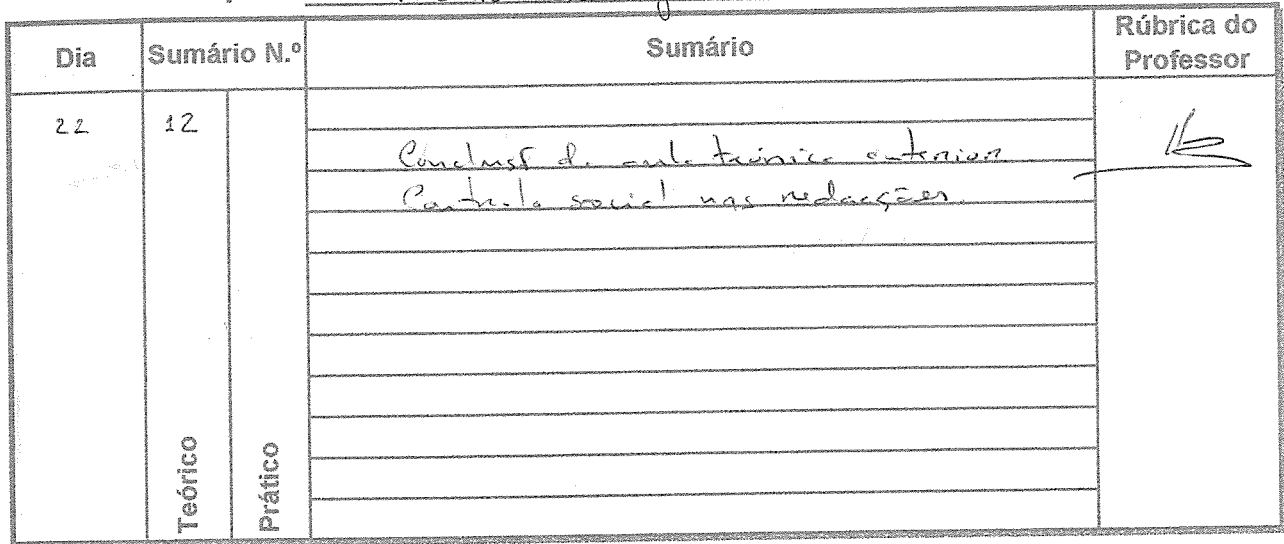 Dia
Sumário N.º
Sumário
Rúbrica do
Professor
22
12
Conclusã da aula teórica anterior
Controlo social nas redacções.
Teórico
Prático